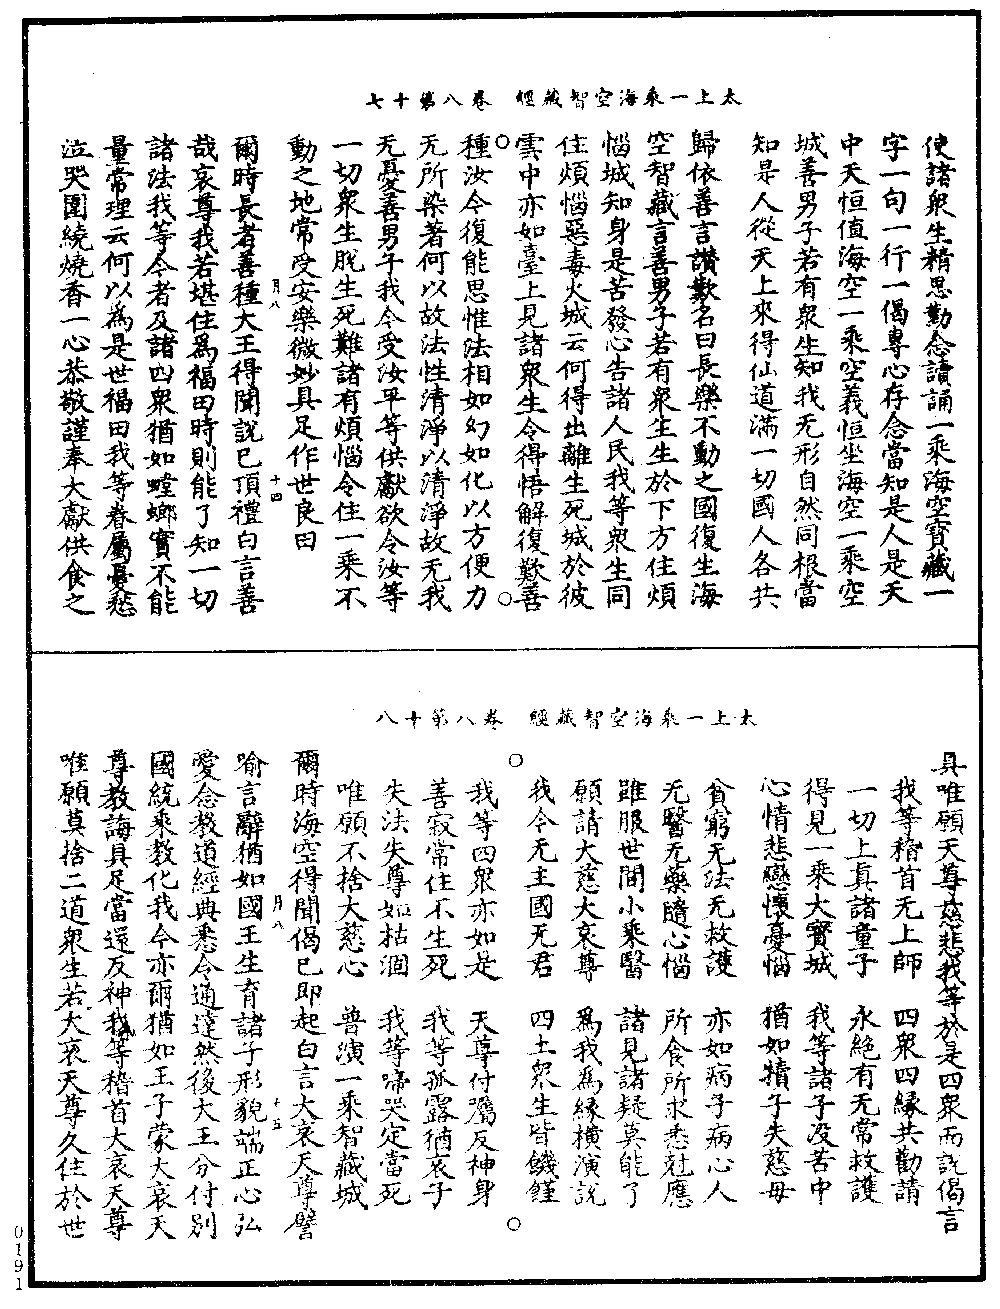 太上一乘海空智藏經　卷八第十七
使諸衆生精思勤念讀誦一乘海空寶藏一
字一句一行一偈專心存念當知是人是天
中天恒值海空一乘空義恒坐海空一乘空
城善男子若有衆生知我无形自然同根當
知是人從天上來得仙道滿一切國人各共
歸依善言讚歎名曰長樂不動之國復生海
空智藏言善男子若有衆生生於下方住煩
惱城知身是苦發心告諸人民我等衆生同
住煩惱惡毒火城云何得出離生死城於彼
雲中亦如臺上見諸衆生令得悟解復歎善
種汝今復能思惟法相如幻如化以方便力
无所染著何以故法性清淨以清淨故无我
无憂善男子我今受汝平等供獻欲令汝等
一切衆生脫生死難諸有煩惱令住一乘不
動之地常受安樂微妙具足作世良田
月八　十四
爾時長者善種大王得聞說已頂禮白言善
哉哀尊我若堪住爲福田時則能了知一切
諸法我等今者及諸四衆猶如螳螂實不能
量常理云何以為是世福田我等眷屬憂愁
泣哭圍繞燒香一心恭敬謹奉大獻供食之
太上一乘海空智藏經　卷八第十八
具唯願天尊慈悲我等於是四衆而說偈言
我等稽首无上師　四衆四緣共勸請
一切上真諸童子　永絕有无常救護
得見一乘大寶城　我等諸子没苦中
心情悲戀懷憂惱　猶如犢子失慈母
貧窮无法无救護　亦如病子病心人
无醫无藥隨心惱　所食所求悉尅應
雖服世間小乘醫　諸見諸疑莫能了
願請大慈大哀尊　爲我爲緣横演說
我今无主國无君　四土衆生皆饑饉
我等四衆亦如是　天尊付囑反神身
善寂常住不生死　我等孤露猶哀子
失法失尊如枯涸　我等啼哭定當死
唯願不捨大慈心　普演一乘智藏城
爾時海空得聞偈已即起白言大哀天尊譬
月八　十五
喻言辭猶如國王生育諸子形貌端正心弘
愛念教道經典悉令通達然後大王分付別
國統乘教化我今亦爾猶如王子蒙大哀天
尊教誨具足當還反神我等稽首大哀天尊
唯願莫捨二道衆生若大哀天尊久住於世
0191